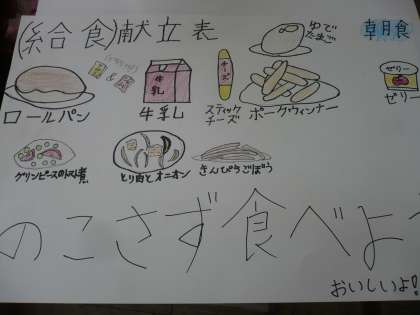 (給食)献立表
ゆで
たまご
朝食
&
牛乳
チーズ
ゼリー
ロールパン
牛乳
スティック
チーズ
ポークウィンナー
ゼリー
グリンピースのトマト煮
とり肉とオニオン
きんぴらごぼう
のこさず食べよう
おいしいよ!